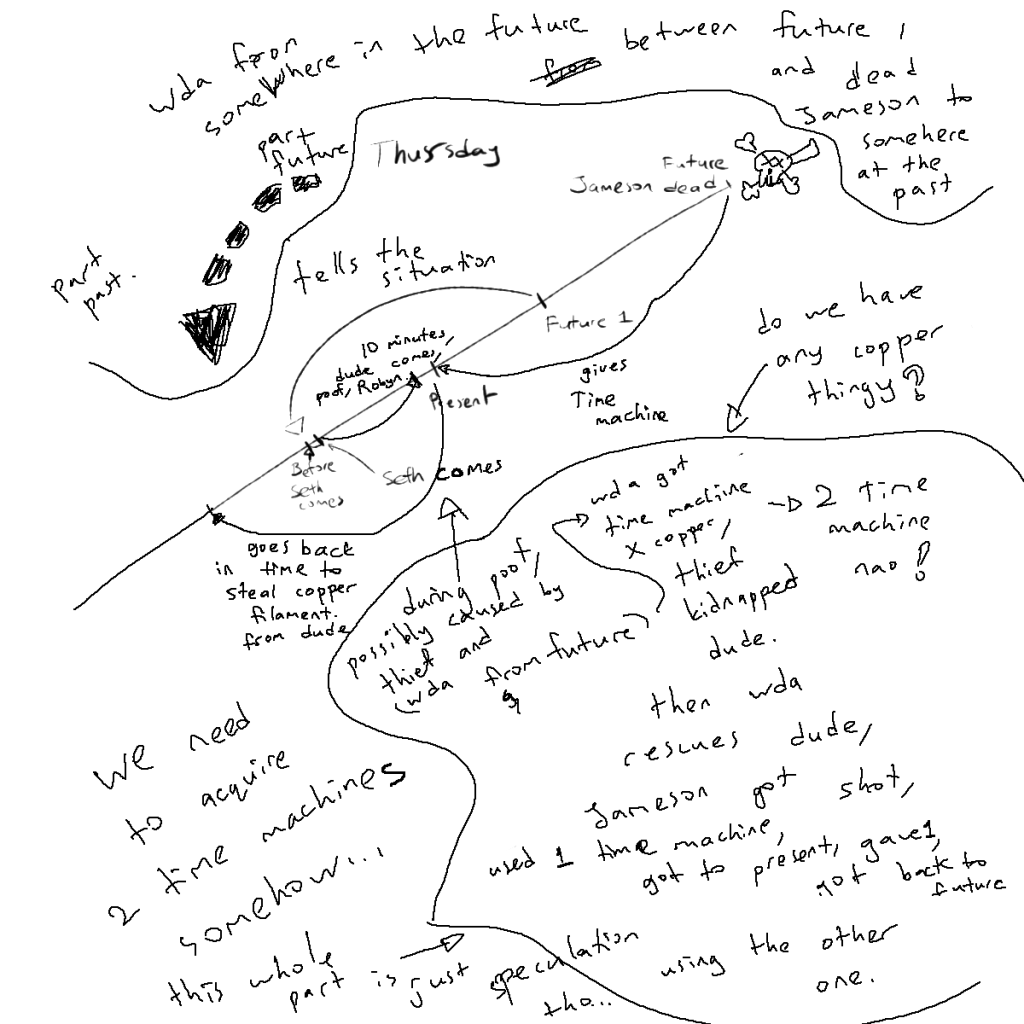 wda from
somewhere in the future
between future 1
and dead
Jameson to
somehere
at the
past
part
future
part
past.
Thursday
Future
Jameson dead
tells the
situation
Future 1
10 minutes,
dude comes,
poof, Robyn.
Present
gives
Time
machine
do we have
any copper
thingy?
Before
Seth
comes
Seth comes
goes back
in time to
steal copper
filament.
from dude
during poof,
possibly caused by
thief and
(wda from future)
wda got
time machine
x copper,
thief
kidnapped
dude.
→ 2 time
machine
nao?
then wda
rescues dude,
Jameson got shot,
used 1 time machine,
got to present, gave 1,
got back to
future
using the other
one.
we need
to acquire
2 time machines
somehow...
this whole
part is just speculation
tho...